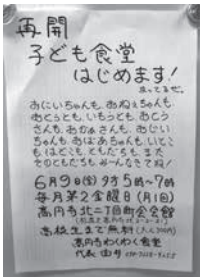 再開
子ども食堂
はじめます!
まってるぜ。
おにいちゃんも、おねえちゃんも
おとうとも、いもうとも、おとう
さんも、おかあさんも、おじい
ちゃんも、おばあちゃんも、いとこ
もはとこも、ともだちも、また
そのともだちも みーんなきてね!
6月9日(金)夕方5時〜7時
毎月第2金曜日(月1回)
高円寺北二丁目町会会館
高校生まで無料(大人300円)
高円寺わくわく食堂
代表